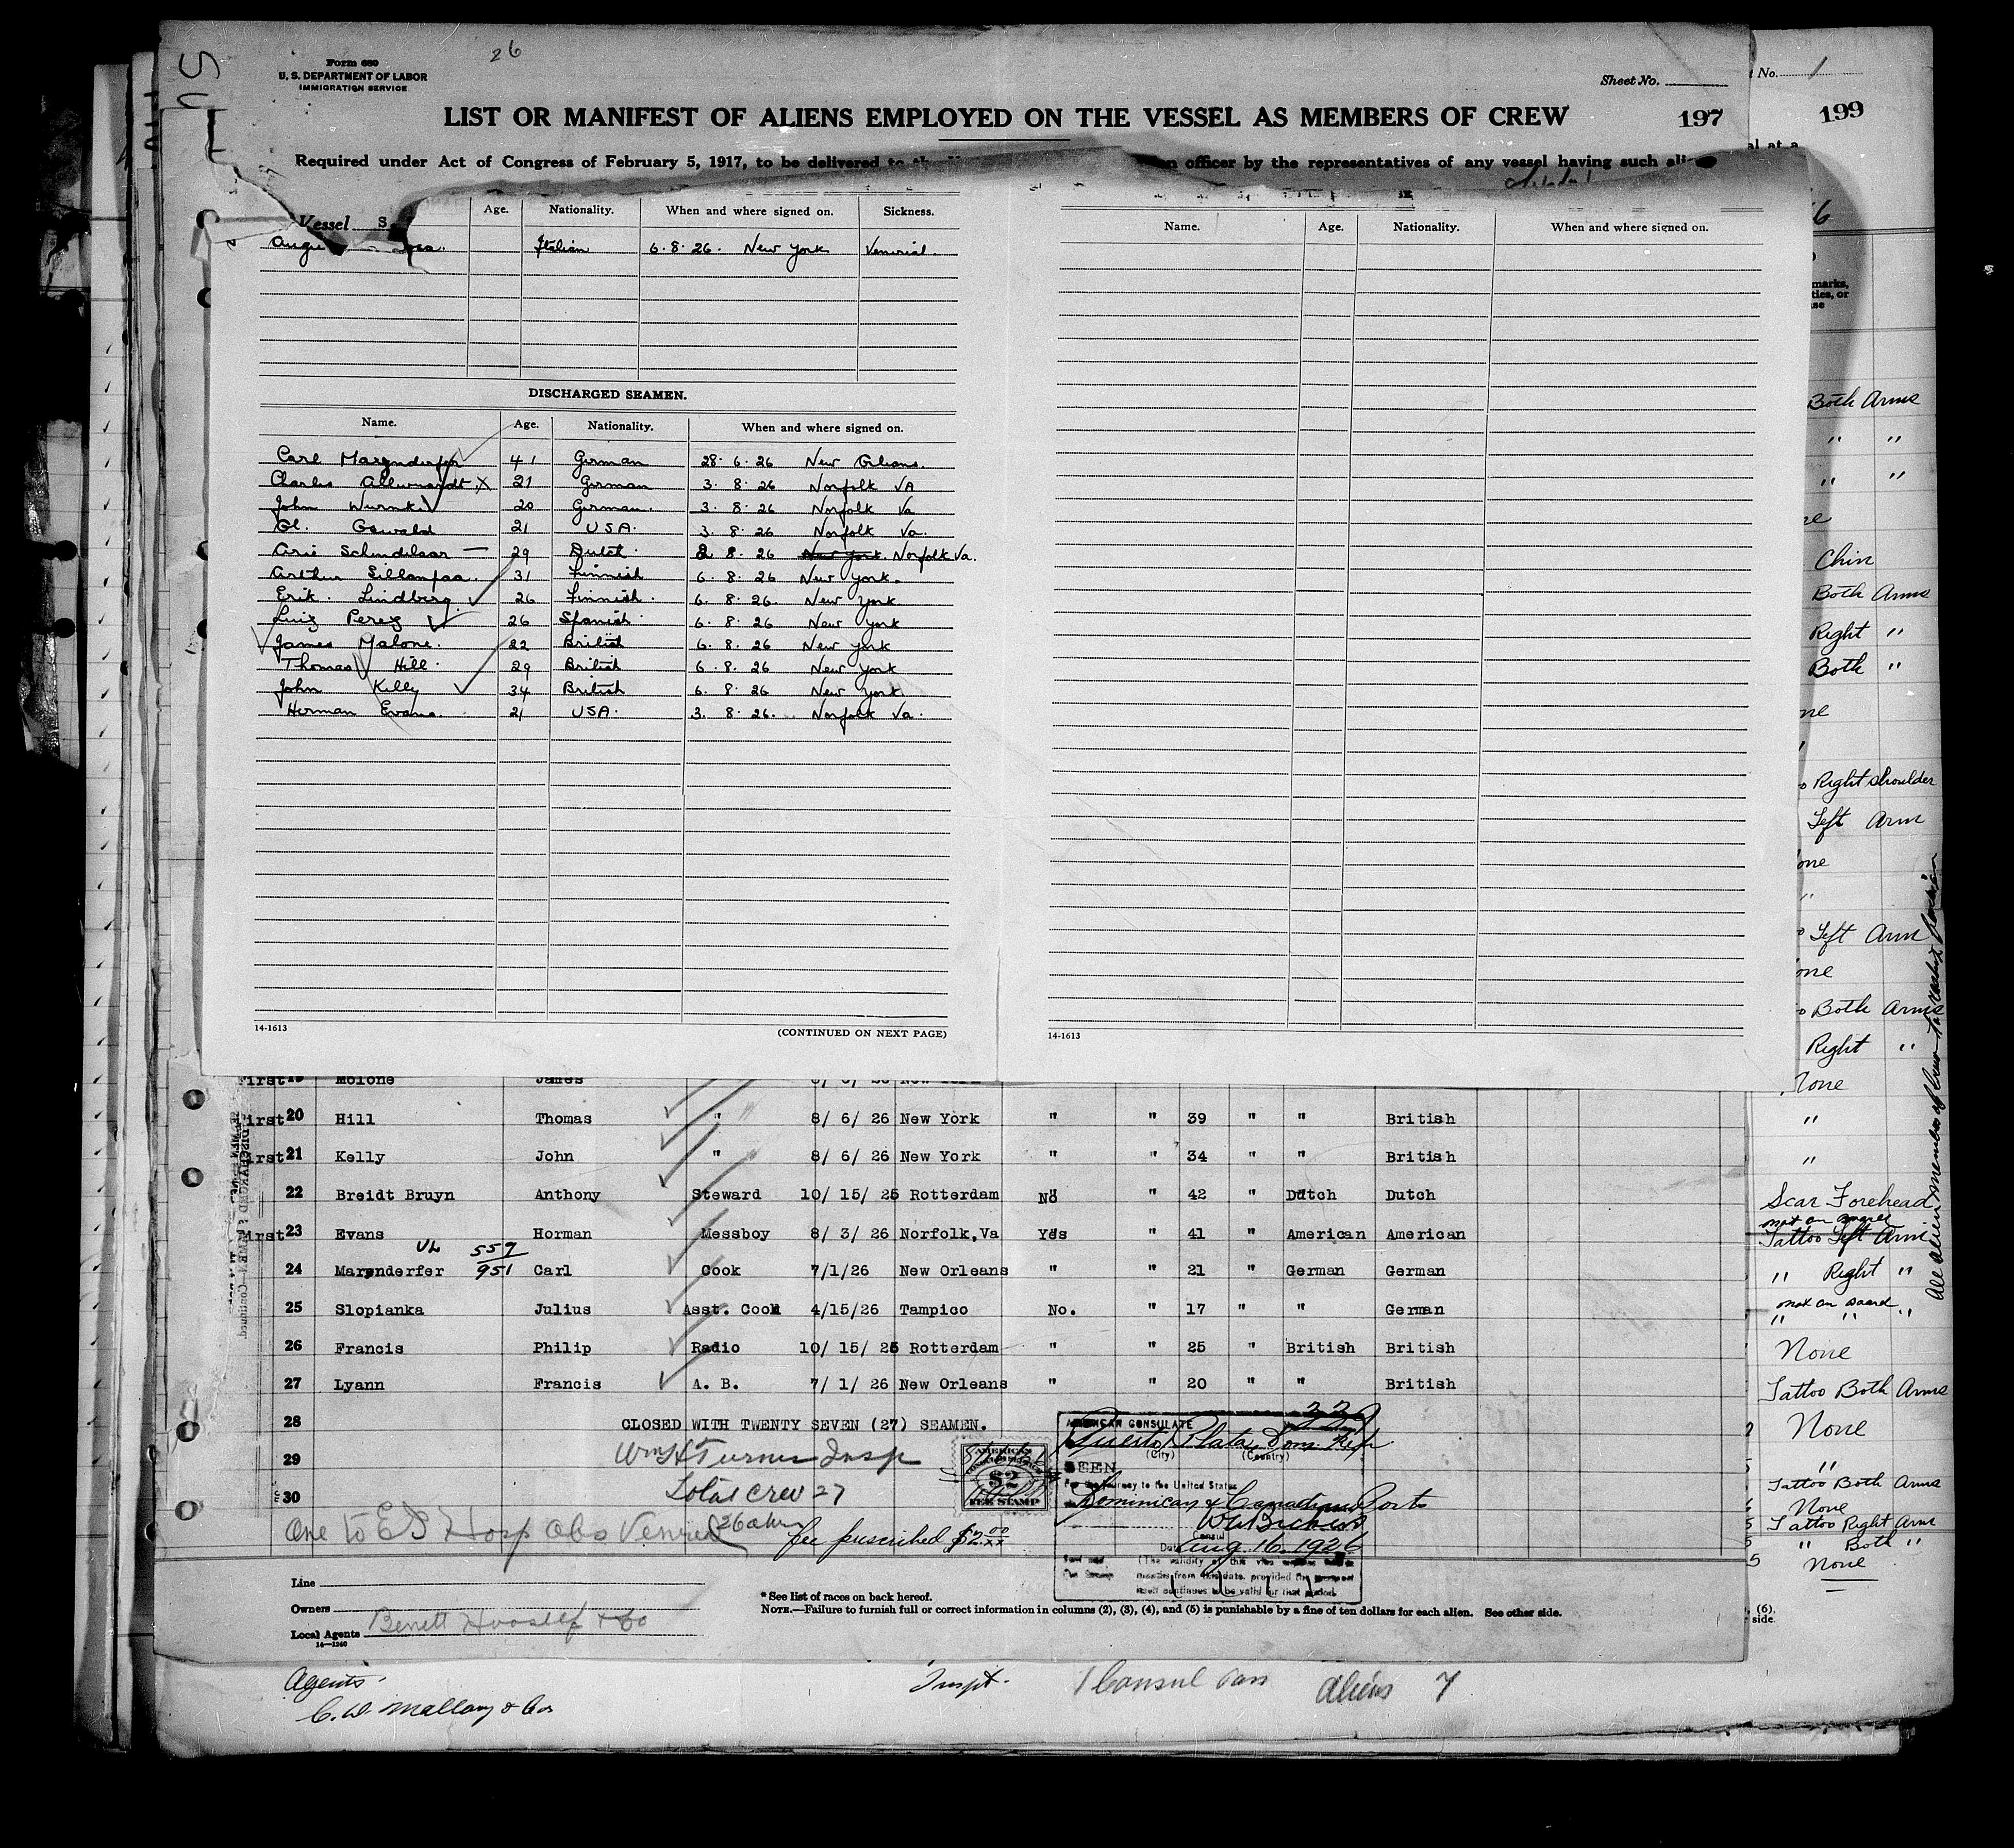 26
Form 680
U. S. DEPARTMENT OF LABOR
IMMIGRATION SERVICE
Sheet No.
t No. 1
LIST OR MANIFEST OF ALIENS EMPLOYED ON THE VESSEL AS MEMBERS OF CREW
197
199
Required under Act of Congress of February 5, 1917, to be delivered to the officer by the representatives of any vessel having such
al at a
Vessel S
Age. Nationality. When and where signed on. Sickness.
Italian 6. 8. 26. New York Venerial.
DISCHARGED SEAMEN.
Name. Age. Nationality. When and where signed on.
Carl Marynderfer 41 German 28. 6. 26 New Orleans.
Charles X 21 German 3. 8. 26 Norfolk VA
John Wurnk 20 German. 3. 8. 26 Norfolk Va
Gl. Oswald 21 USA. 3. 8. 26 Norfolk Va.
Arie Schindelaar — 29 Dutch. 2. 8. 26 New York. Norfolk Va.
Arthur Sillanpaa. 31 Finnish 6. 8. 26 New York.
Erik. Lindberg. 26 Finnish. 6. 8. 26. New York.
Luiz Perez 26 Spanish 6. 8. 26 New York
James Malone. 22 British 6. 8. 26 New York
Thomas Hill. 29 British 6. 8. 26 New York
John Killy 34 British 6. 8. 26 New York.
Herman Evans. 21 USA. 3. 8. 26. Norfolk Va.
14-1613
(CONTINUED ON NEXT PAGE)
Name. Age. Nationality. When and where signed on.
14-1613
First 19 Molone James 8/ 6/ 26 New York
First 20 Hill Thomas " 8/ 6/ 26 New York " " 39 " " British
First 21 Kelly John " 8/ 6/ 26 New York " " 34 " " British
22 Breidt Bruyn Anthony Steward 10/ 15/ 25 Rotterdam No " 42 " Dutch Dutch
First 23 Evans Horman Messboy 8/ 3/ 26 Norfolk,Va Yes " 41 " American American
VL 557
951
24 Marynderfer Carl Cook 7/1/26 New Orleans " " 21 " German German
25 Slopianka Julius Asst. Cook 4/15/26 Tampico No. " 17 " " German
26 Francis Philip Radio 10/ 15/ 25 Rotterdam " " 25 " British British
27 Lyann Francis A. B. 7/ 1/ 26 New Orleans " " 20 " " British
28 CLOSED WITH TWENTY SEVEN (27) SEAMEN.
29 Wm H Turner Insp
30 Total crew 27
One to E I Hosp obs Venereal
fee prescribed $2.00
AMERICAN
$2
FEE STAMP
AMERICAN CONSULATE
Puerto Plata, Dom. Rep.
(City) (Country)
SEEN
For the journey to the United States
Dominican & Canadian Ports
Consul
Date Aug 16. 1926
(The validity of this visa
months from this date, provided the passport
itself continues to be valid for that period.
Line
Owners
Local Agents
14—1240
* See list of races on back hereof.
NOTE.—Failure to furnish full or correct information in columns (2), (3), (4), and (5) is punishable by a fine of ten dollars for each alien. See other side.
Agents.
C. D. Mallory & Co
Inspt.
1 Consul
Aliens 7
marks,
ties, or
se
Both Arms
" "
" "
Chin
Both Arms
Right "
Both "
Right shoulder
Left Arm
one
"
Left Arm
one
Both Arms
Right "
None
"
"
Scar Forehead
not on board
Tattoo Left Arm
" Right "
not on board
" " "
None
Tattoo Both Arms
None
"
Tattoo Both Arms
None
Tattoo Right Arm
" Both "
None
(6).
side.